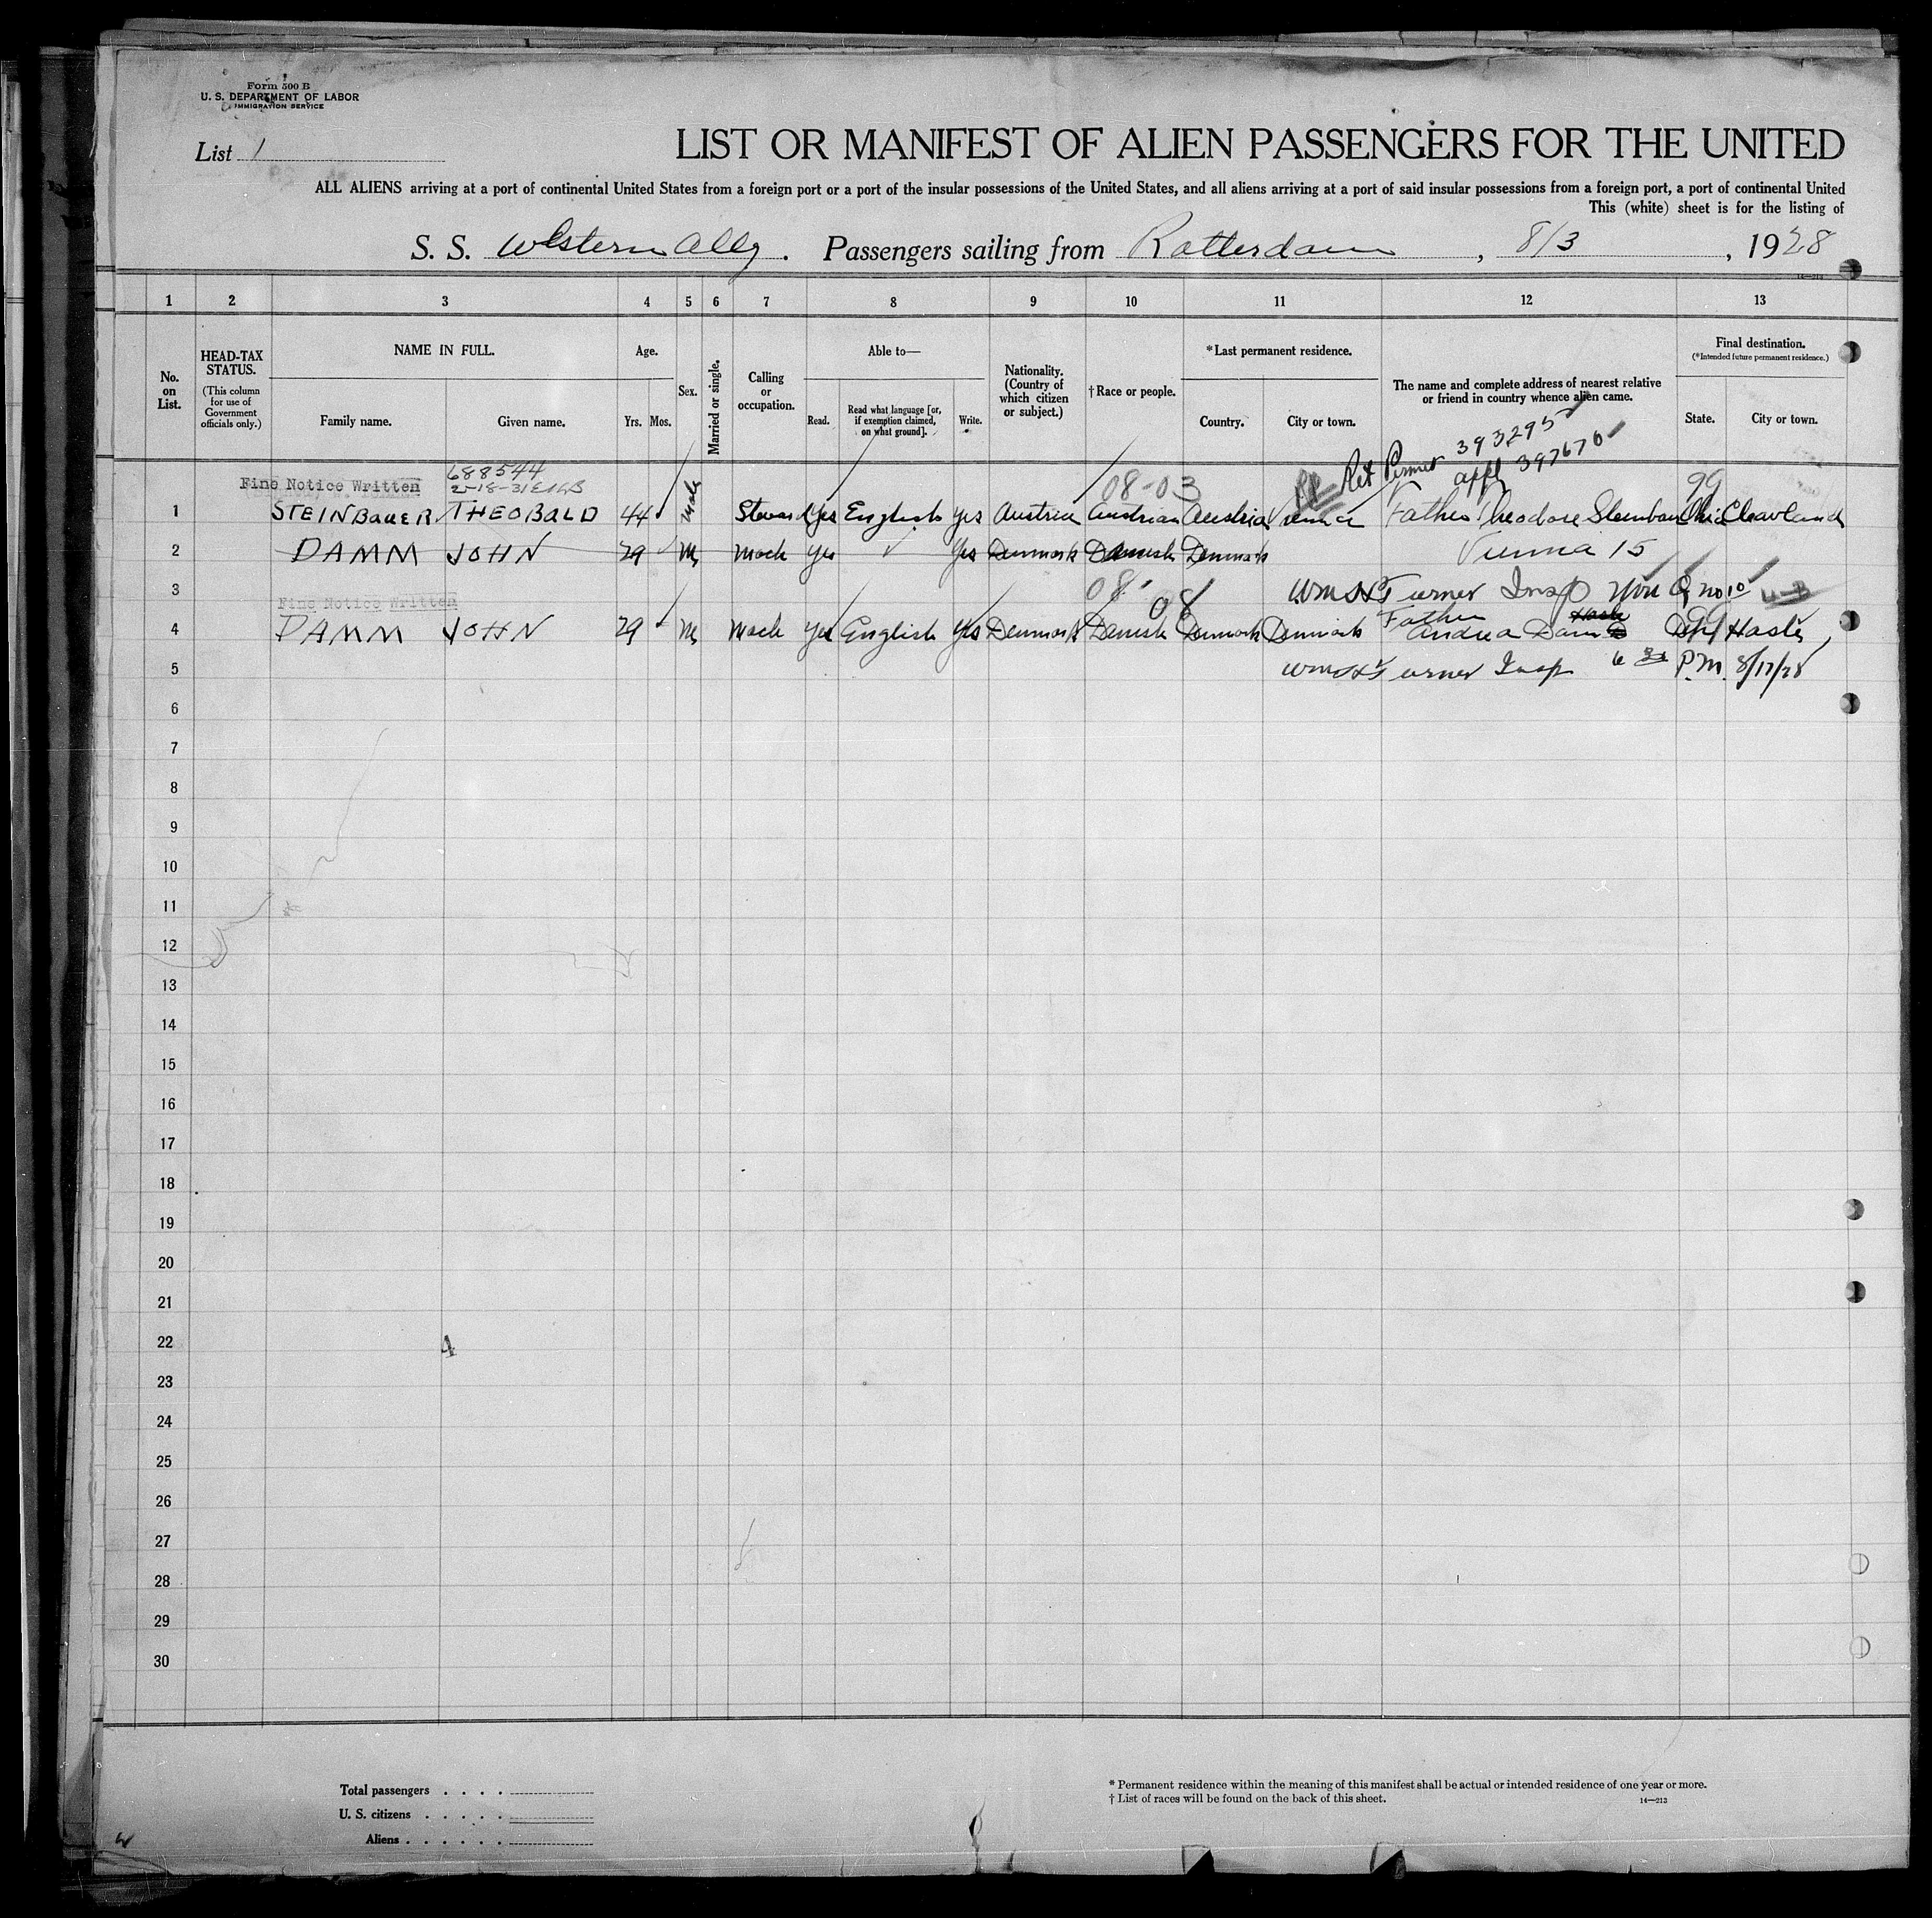 Form 500 B
U. S. DEPARTMENT OF LABOR
IMMIGRATION SERVICE
List 1
LIST OR MANIFEST OF ALIEN PASSENGERS FOR THE UNITED
ALL ALIENS arriving at a port of continental United States from a foreign port or a port of the insular possessions of the United States, and all aliens arriving at a port of said insular possessions from a foreign port, a port of continental United
This (white) sheet is for the listing of
S. S. Western Ally. Passengers sailing from Rotterdam, 8/3, 1928
14—213
1 2 3 4 5 6 7 8 9 10 11 12 13
No. on List.
HEAD-TAX STATUS.
(This column for use of Government officials only.)
NAME IN FULL.
Family name. Given name.
Age.
Yrs. Mos.
Sex.
Married or single.
Calling or occupation.
Able to—
Read. Read what language [or, if exemption claimed, on what ground]. Write.
Nationality. (Country of which citizen or subject.)
† Race or people.
*Last permanent residence.
Country. City or town.
The name and complete address of nearest relative or friend in country whence alien came.
Final destination.
(*Intended future permanent residence.)
State. City or town.
Ret Permit 393295
appl 397670
Fine Notice Written 688544
2-18-31 08-03 99
1 STEINBAUER THEOBALD 44 Male Steward Yes English yes Austria Austrian Austria Vienna Father Theodore Steinbauer Ohio Cleaveland
2 DAMM JOHN 29 M Mach yes Yes Denmark Danish Denmark Vienna 15
3 08 Wm H Turner Insp
Fine Notice Written 08 Father
4 DAMM JOHN 29 M Mach yes English yes Denmark Danish Denmark Denmark Andrea Damm Hasle
5 Wm H Turner Insp 6 P.M. 8/17/28
6
7
8
9
10
11
12
13
14
15
16
17
18
19
20
21
22
4
23
24
25
26
27
28
29
30
Total passengers
U. S. citizens
Aliens
* Permanent residence within the meaning of this manifest shall be actual or intended residence of one year or more.
† List of races will be found on the back of this sheet.
14—213